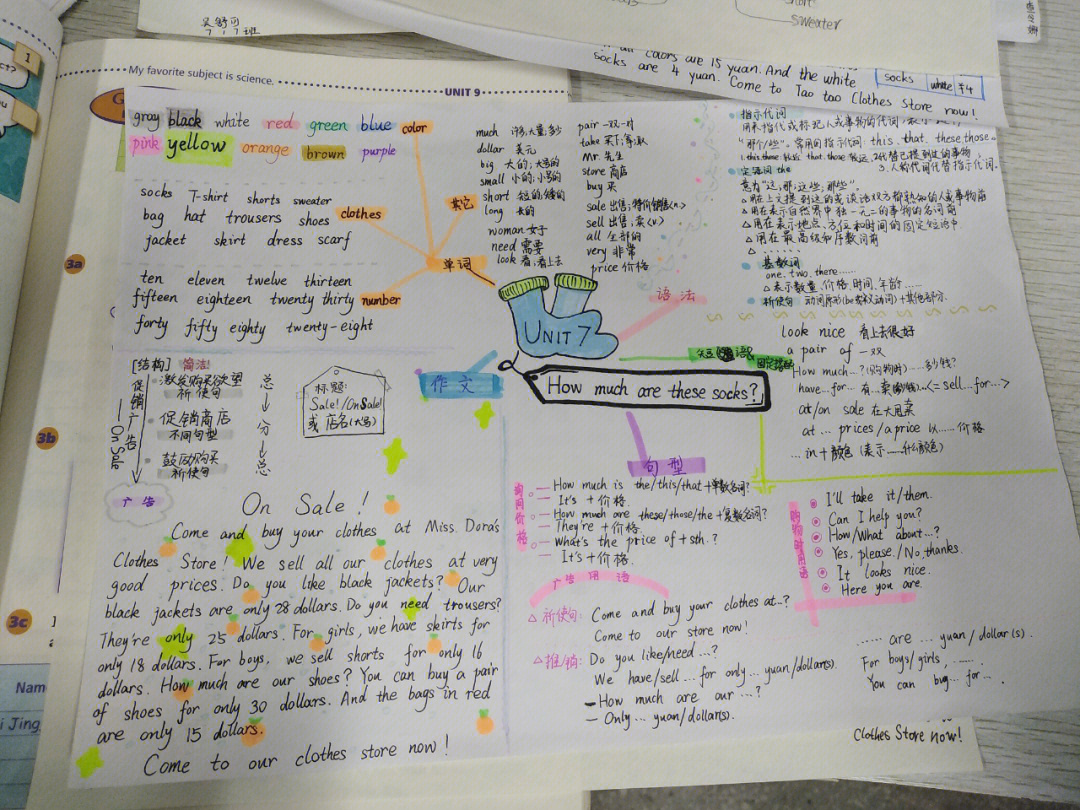 吴舒可
7.17班
sweater
My favorite subject is science.
UNIT 9
all colors are 15 yuan. And the white
socks are 4 yuan. Come to Tao tao Clothes Store now!
socks white ¥4
1
3a
3b
3c
Nam
Jing
gray black white red green blue color
pink yellow orange brown purple
socks T-shirt shorts sweater
bag hat trousers shoes clothes
jacket skirt dress scarf
ten eleven twelve thirteen
fifteen eighteen twenty thirty number
forty fifty eighty twenty-eight
单词
其它
much 许多;大量;多少
dollar 美元
big 大的;大号的
small 小的;小号的
short 短的;矮的
long 长的
woman 女子
need 需要
look 看;看上去
pair 一双;一对
take 买下;拿;取
Mr. 先生
store 商店
buy 买
sale 出售;特价销售<n.>
sell 出售;卖<v.>
all 全部的
very 非常
price 价格
语法
指示代词
用来指代或标记人或事物的代词
"那个/些"。常用的指示代词: this. that. these. those.
定冠词 the
意为"这;那;这些;那些"。
△用在上文提到过的或谈话双方都熟知的人或事物前
△用在表示自然界中独一无二的事物的名词前
△用在表示地点、方位和时间的固定短语中
△用在最高级和序数词前
△ ......
基数词
one. two. there......
△表示数量、价格、时间、年龄......
祈使句: 动词原形(be或实义动词)+其他部分.
UNIT 7
How much are these socks?
短语
固定搭配
look nice 看上去很好
a pair of 一双
How much...?(购物时)......多少钱?
have...for... 有...卖...<=sell...for...>
at/on sale 在大甩卖
at ... prices / a price 以......价格
... in + 颜色 (表示......什么颜色)
作文
[结构] 简洁!
促销广告——On Sale
激发购买欲望
祈使句
促销商店
不同句型
鼓励购买
祈使句
总
分
总
标题:
Sale!/On Sale!
或店名(大写)
广告
On Sale!
Come and buy your clothes at Miss. Dora's
Clothes Store! We sell all our clothes at very
good prices. Do you like black jackets? Our
black jackets are only 28 dollars. Do you need trousers?
They're only 25 dollars. For girls, we have skirts for
only 18 dollars. For boys, we sell shorts for only 16
dollars. How much are our shoes? You can buy a pair
of shoes for only 30 dollars. And the bags in red
are only 15 dollars.
Come to our clothes store now!
句型
询问价格
— How much is the/this/that + 单数名词?
— It's + 价格
— How much are these/those/the + 复数名词?
— They're + 价格.
— What's the price of + sth.?
— It's + 价格.
购物时用语
I'll take it/them.
Can I help you?
How/What about...?
Yes, please./No, thanks.
It looks nice.
Here you are.
广告用语
△祈使句: Come and buy your clothes at...?
Come to our store now!
△推/销: Do you like/need ...?
We have/sell ... for only ... yuan/dollar(s).
— How much are our ...?
— Only ... yuan/dollar(s).
..... are ... yuan / dollar(s).
For boys/girls, .......
You can buy... for... .
Clothes Store now!